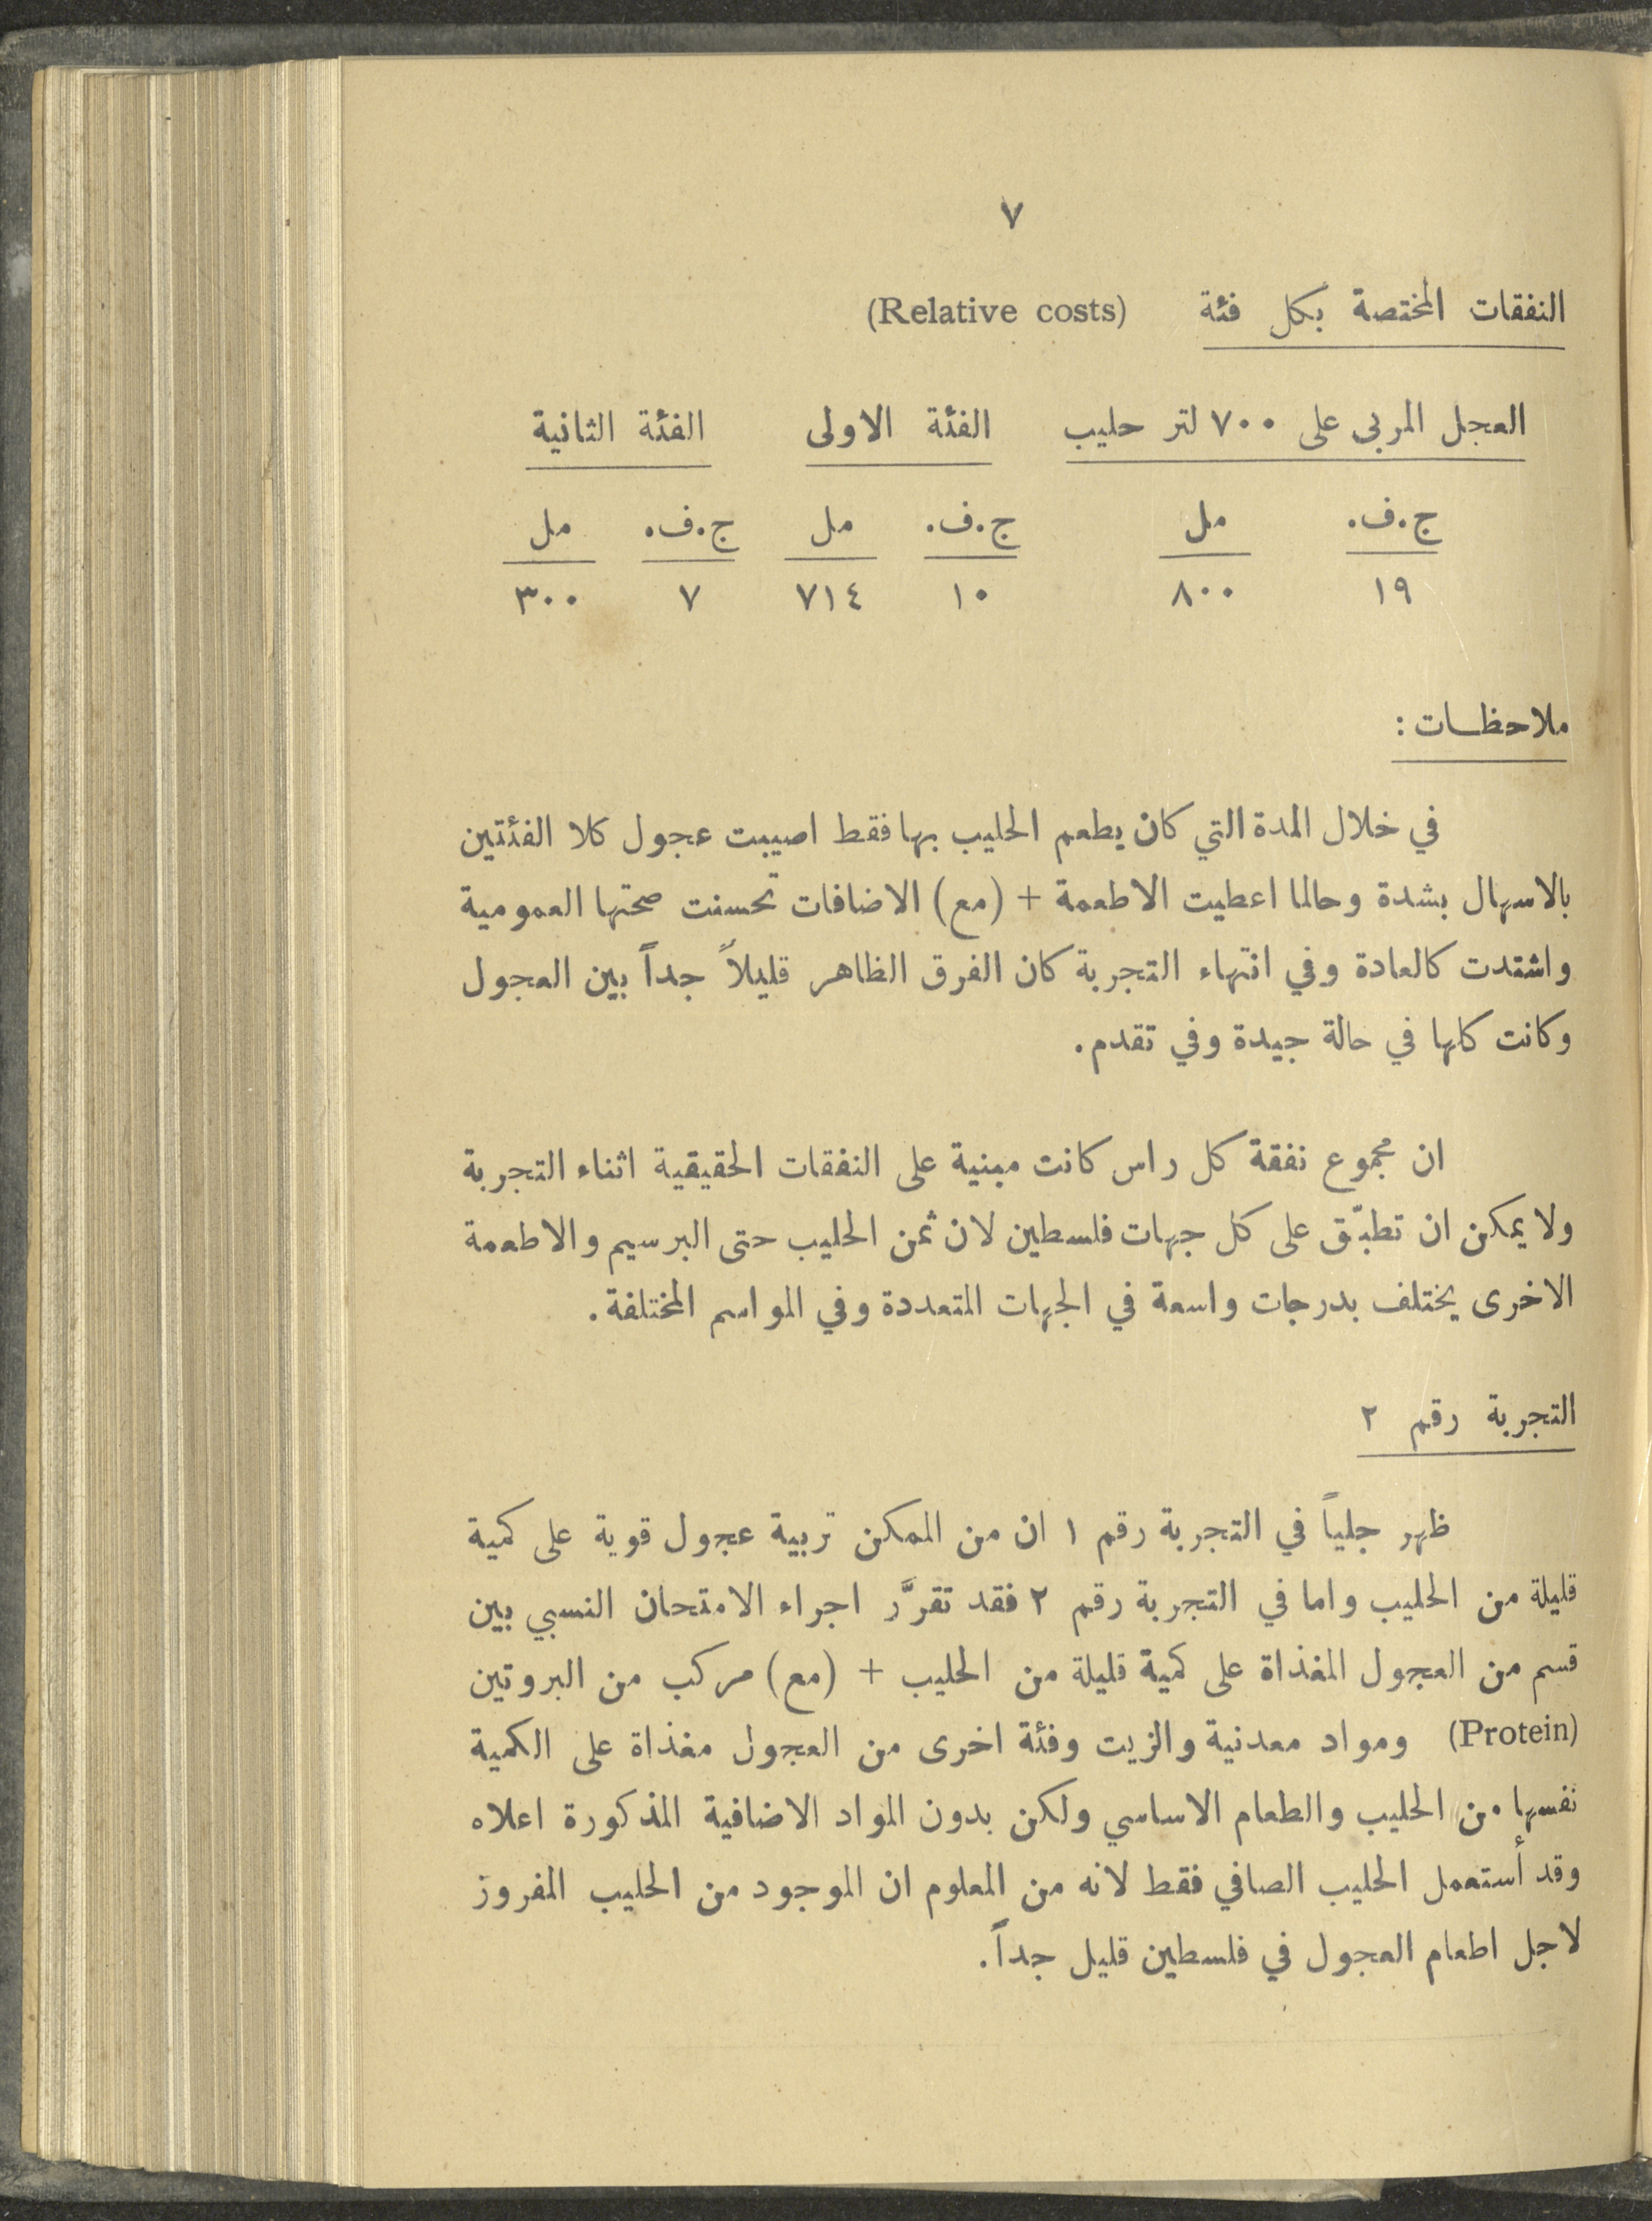 ٧
النفقات المختصة بكل فئة (Relative costs)
العجل المربى على ٧٠٠ لتر حليب الفئة الاولى الفئة الثانية
ج.ف. مل ج.ف. مل ج.ف. مل
١٩ ٨٠٠ ١٠ ٧١٤ ٧ ٣٠٠
ملاحظات :
في خلال المدة التي كان يطعم الحليب بها فقط اصيبت عجول كلا الفئتين
بالاسهال بشدة وحالما اعطيت الاطعمة + (مع) الاضافات تحسنت صحتها العمومية
واشتدت كالعادة وفي انتهاء التجربة كان الفرق الظاهر قليلاً جداً بين العجول
وكانت كلها في حالة جيدة وفي تقدم.
ان مجموع نفقة كل راس كانت مبنية على النفقات الحقيقية اثناء التجربة
ولا يمكن ان تطبّق على كل جهات فلسطين لان ثمن الحليب حتى البرسيم والاطعمة
الاخرى يختلف بدرجات واسعة في الجهات المتعددة وفي المواسم المختلفة.
التجربة رقم ٢
ظهر جلياً في التجربة رقم ١ ان من الممكن تربية عجول قوية على كمية
قليلة من الحليب واما في التجربة رقم ٢ فقد تقرَّر اجراء الامتحان النسبي بين
قسم من العجول المغذاة على كمية قليلة من الحليب + (مع) مركب من البروتين
(Protein) ومواد معدنية والزيت وفئة اخرى من العجول مغذاة على الكمية
نفسها من الحليب والطعام الاساسي ولكن بدون المواد الاضافية المذكورة اعلاه
وقد أستعمل الحليب الصافي فقط لانه من المعلوم ان الموجود من الحليب المفروز
لاجل اطعام العجول في فلسطين قليل جداً.